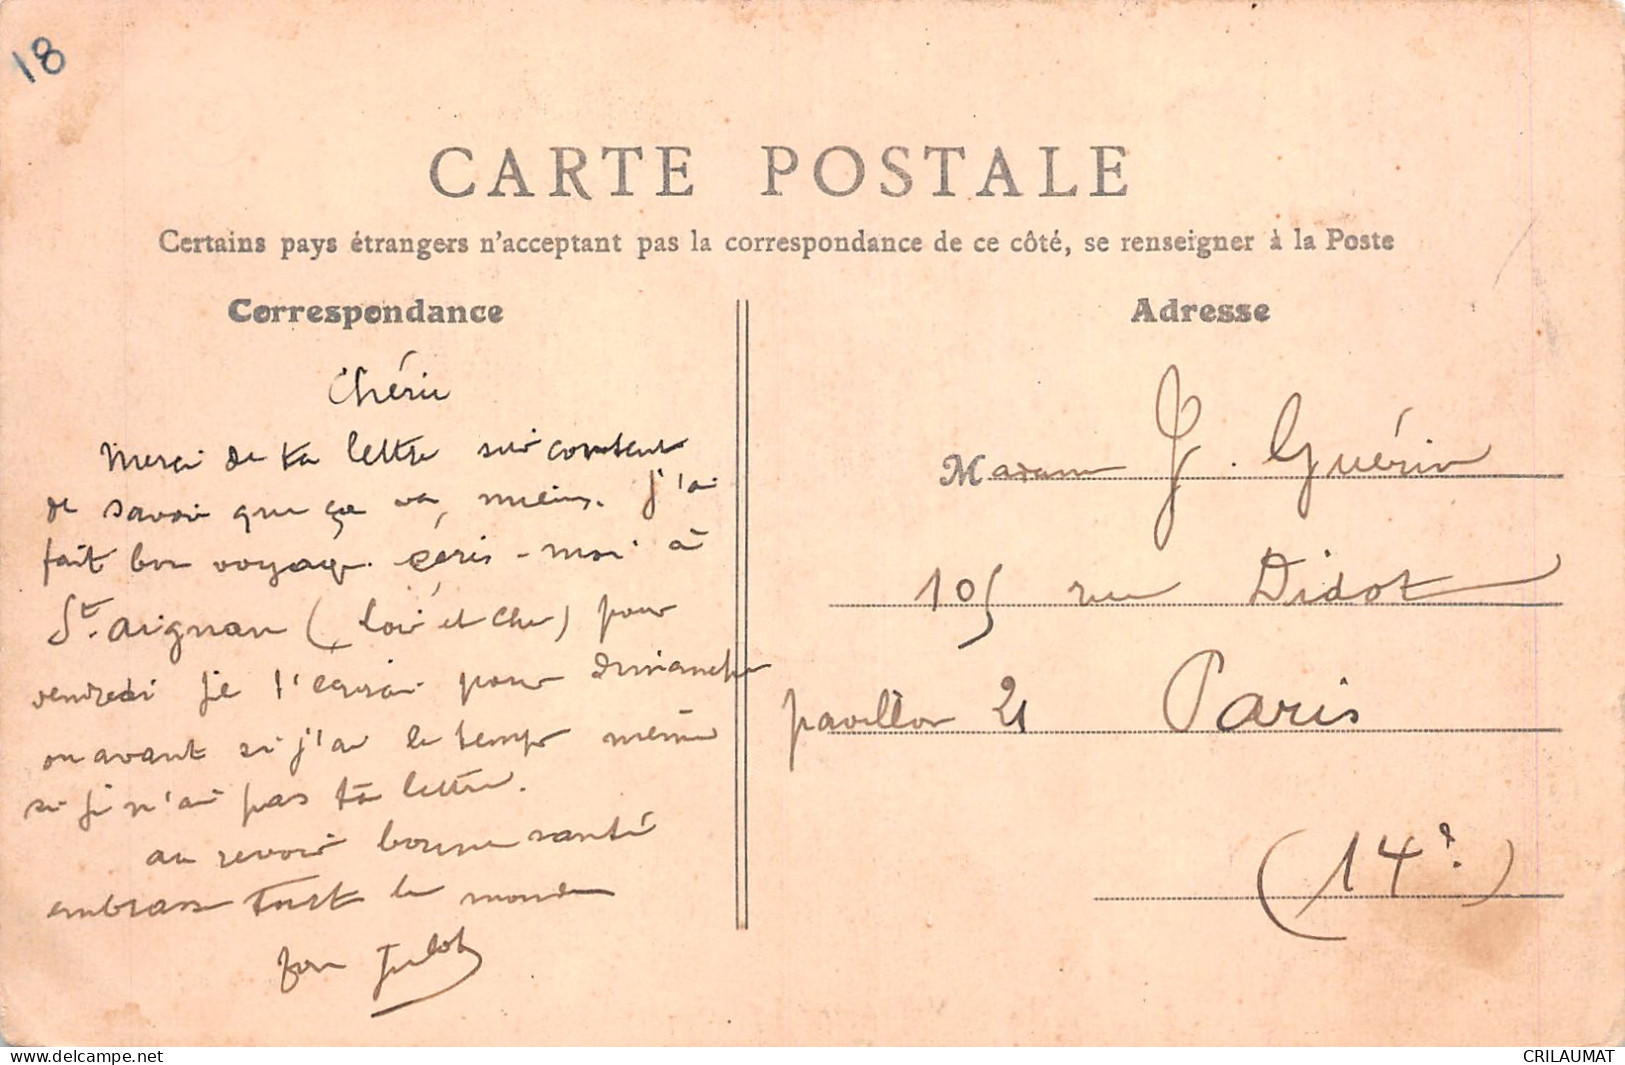 18
CARTE POSTALE
Certains pays étrangers n'acceptant pas la correspondance de ce côté, se renseigner à la Poste
Correspondance
Chérie
Merci de ta lettre suis content
de savoir que ça va mieux. J'ai
fait bon voyage. écris-moi à
St. Aignan (Loir et Cher) pour
vendredi je t'écrirai pour dimanche
ou avant si j'ai le temps même
si je n'ai pas ta lettre.
au revoir bonne santé
embrasse tout le monde
ton Julot
Adresse
Madame J. Guérin
105 rue Didot
pavillon 21 Paris
(14e.)
www.delcampe.net
CRILAUMAT